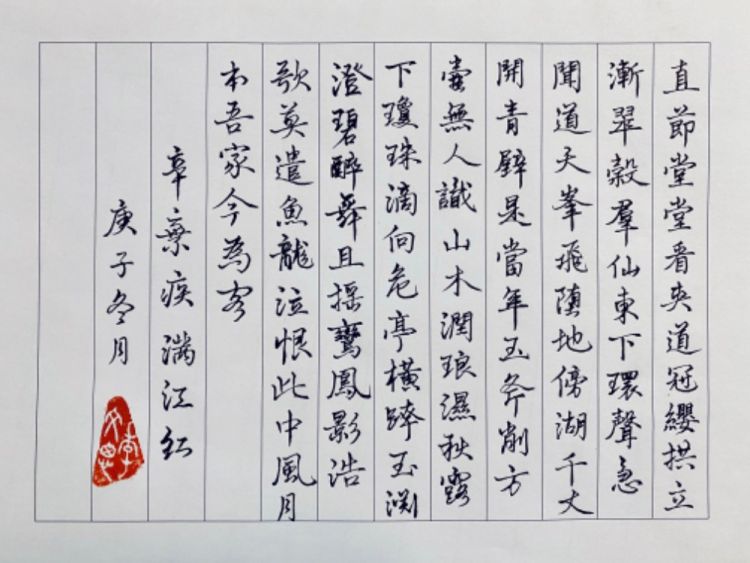 直節堂堂看夾道冠纓拱立
漸翠穀羣仙東下環聲急
聞道天峯飛堕地傍湖千丈
開青壁是當年玉斧削方
壺無人識山木潤琅濕秋露
下瓊珠滴向危亭橫跨玉渊
澄碧醉舞且摇鸞鳳影浩
歌莫遣魚龍泣恨此中風月
本吾家今為客
辛棄疾滿江紅
庚子冬月